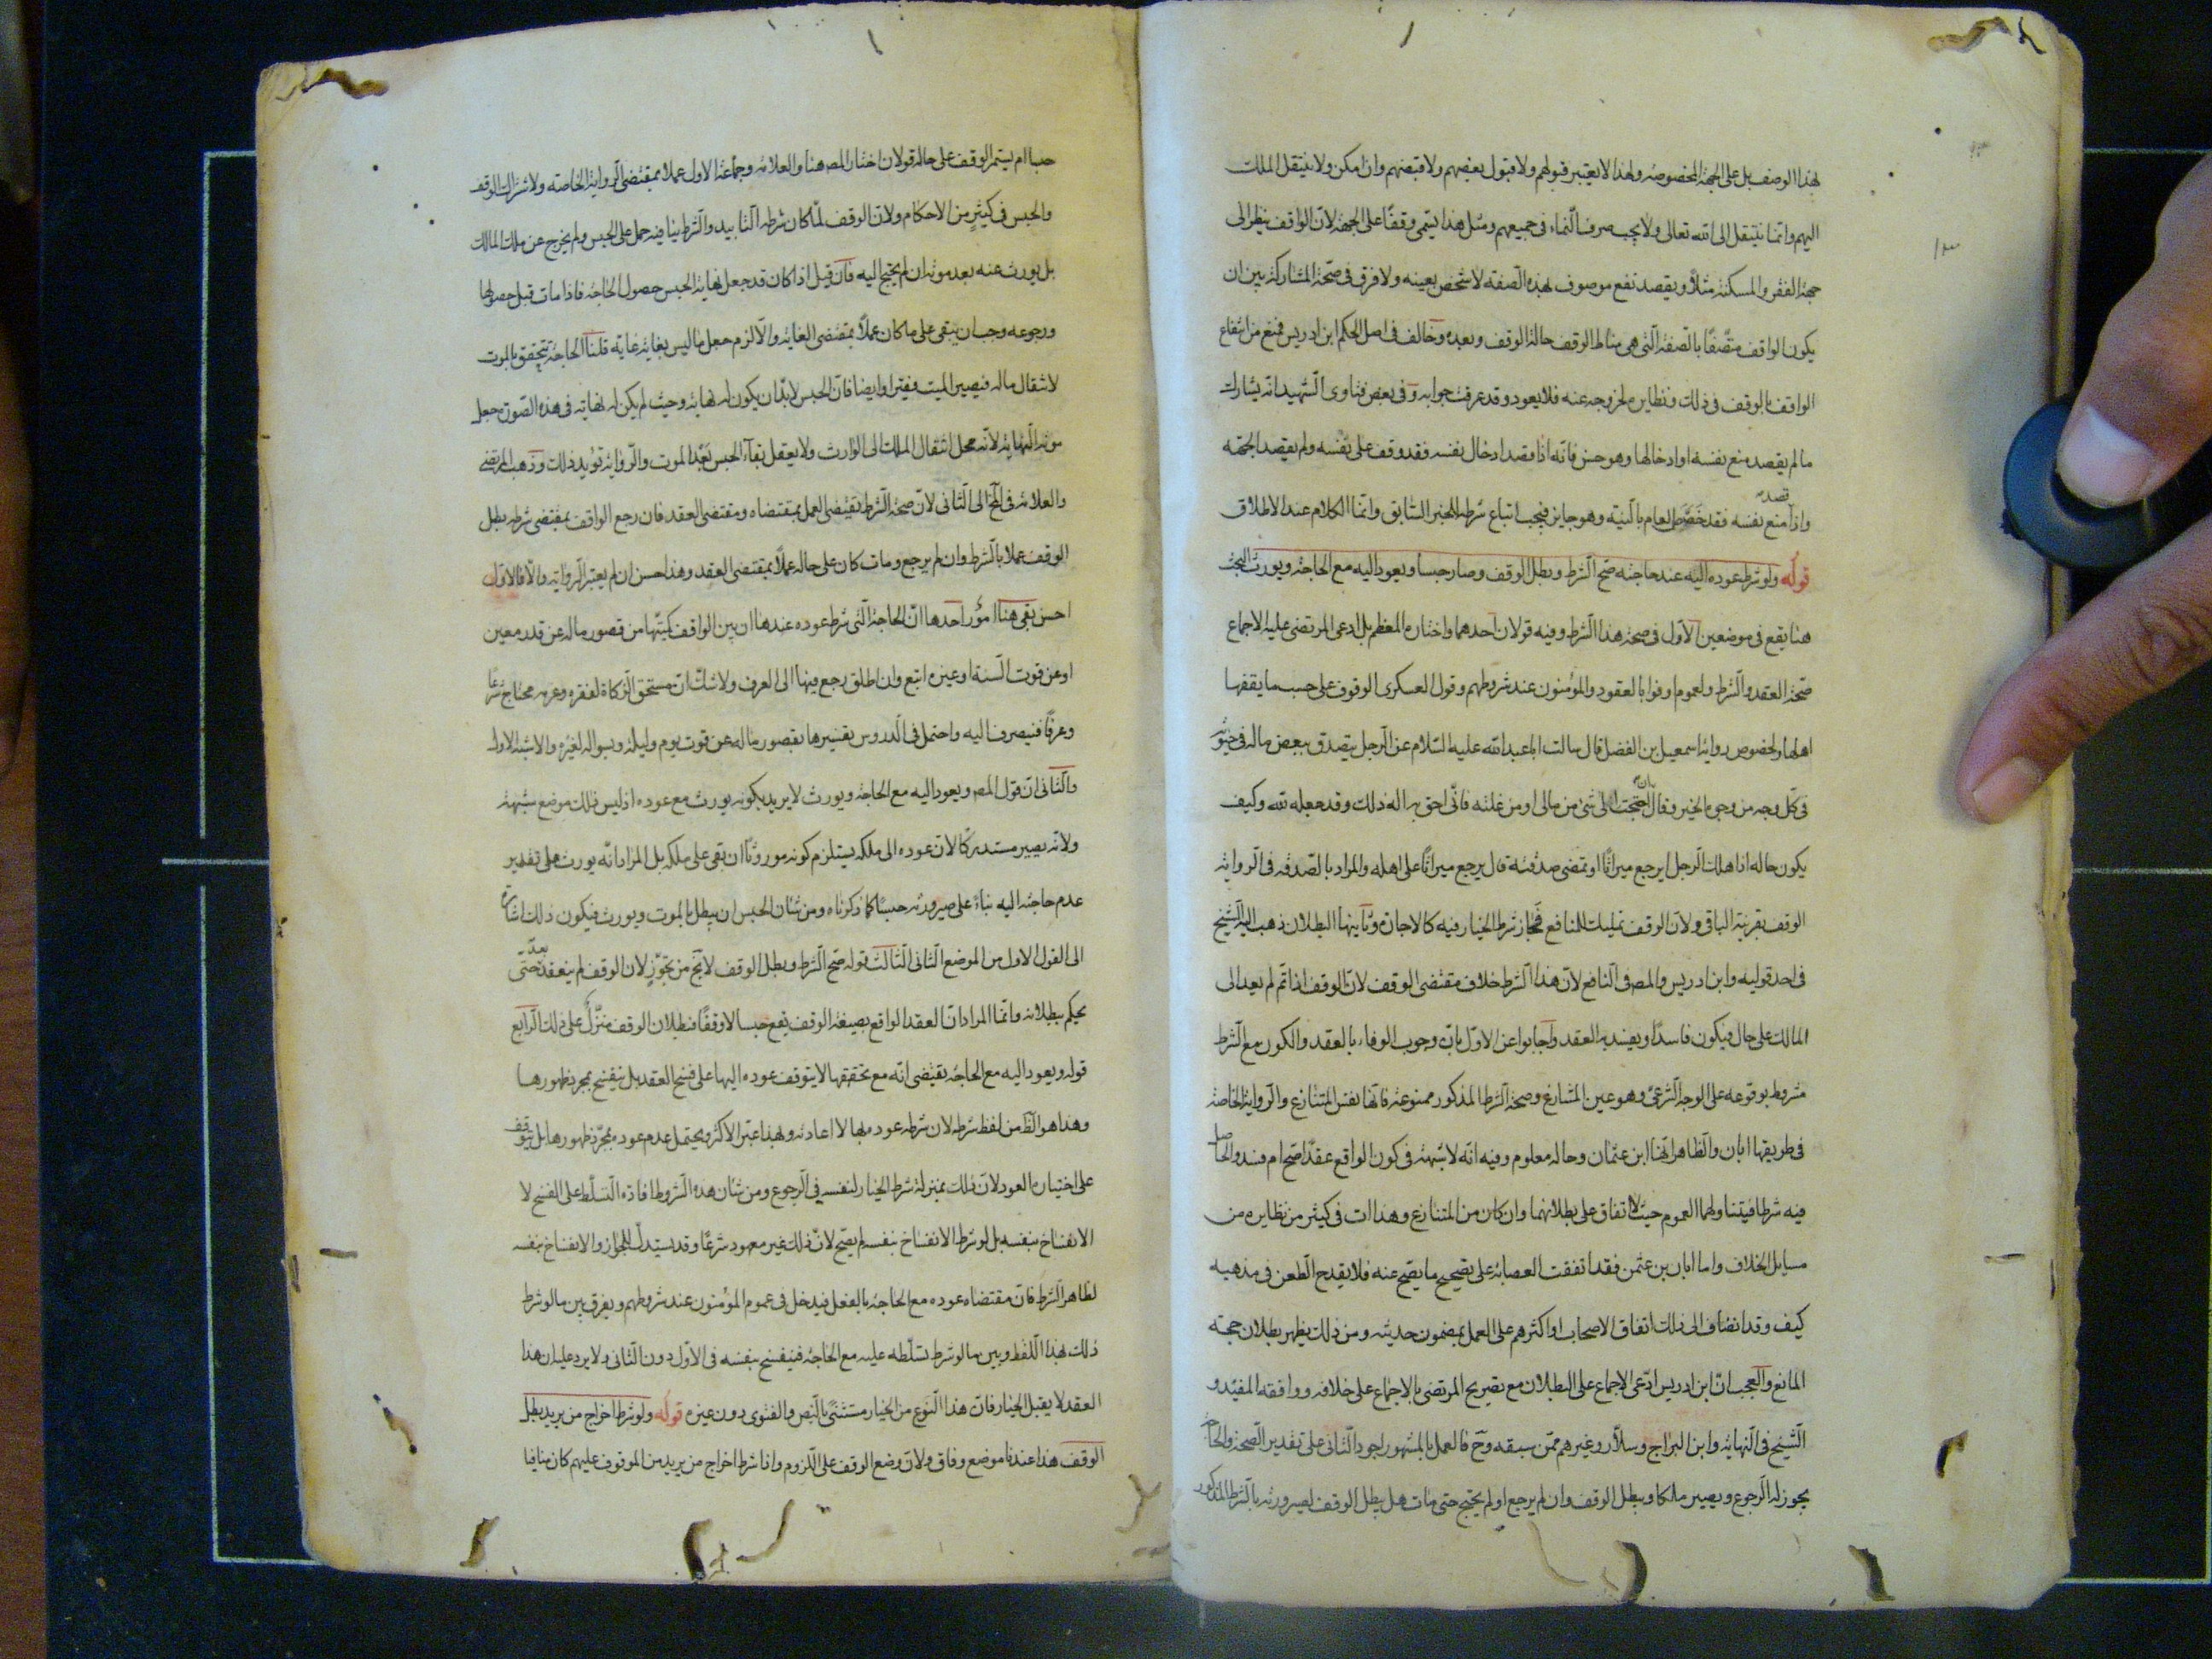 بهذا الوصف بل على الجهة المخصوصة ولهذا لا يعتبر قبولهم ولا قبول بعضهم ولا قبضهم وان امكن ولا ينتقل الملك
اليهم وانما ينتقل الى الله تعالى ولا يجب صرف النماء في جميعهم ومثل هذا يسمى وقفًا على الجهة لان الواقف ينظر الى
جهة الفقر والمسكنة مثلا ويقصد نفع موصوف بهذه الصفة لا شخص بعينه ولا فرق في صحة المشاركة بين ان
يكون الواقف متصفًا بالصفة التي هي مناط الوقف حالة الوقف وبعده وخالف في اصل الحكم ابن ادريس فمنع من انتفاع
الواقف بالوقف في ذلك ونظايره لخروجه عنه فلا يعود وقد عرفت جوابه وفي بعض فتاوى الشهيد انه يشارك
ما لم يقصد منع نفسه او ادخالها وهو حسن فانه اذا قصد ادخال نفسه فقد وقف على نفسه ولم يقصد الجهة
واذا قصد منع نفسه فقد خصص العام بالنية وهو جايز فيجب اتباع شرطه للخبر السابق وانما الكلام عند الاطلاق
قوله ولو شرط عوده اليه عند حاجته صح الشرط وبطل الوقف وصار حبسا ويعود اليه مع الحاجة ويورث البحث
هنا يقع في موضعين الاول في صحة هذا الشرط وفيه قولان احدهما واختاره المعظم بل ادعى المرتضى عليه الاجماع
صحة العقد والشرط ولعموم اوفوا بالعقود والمؤمنون عند شروطهم وقول العسكرى الوقوف على حسب ما يقفها
اهلها ولخصوص رواية اسمعيل بن الفضل قال سالت ابا عبد الله عليه السلام عن الرجل يتصدق ببعض ماله في حيوته
في كل وجه من وجوه الخير وقال ان احتجت الى شئ من مالى او من غلته فانى احق به اله ذلك وقد جعله لله وكيف
يكون حاله اذا هلك الرجل ايرجع ميراثا او تمضى صدقته قال يرجع ميراثا على اهله والمراد بالصدقة في الرواية
الوقف بقرينة الباقى ولان الوقف تمليك للمنافع فجاز شرط الخيار فيه كالاجارة وثانيها البطلان ذهب اليه الشيخ
في احد قوليه وابن ادريس والمص في النافع لان هذا الشرط خلاف مقتضى الوقف لان الوقف اذا تم لم يعد الى
المالك على حال فيكون فاسدا ويفسد به العقد واجابوا عن الاول بان وجوب الوفاء بالعقد والكون مع الشرط
مشروط بوقوعه على الوجه الشرعى وهو عين المتنازع وصحة الشرط المذكور ممنوعة فانها نفس المتنازع والرواية الخاصة
في طريقها ابان والظاهر انه ابن عثمان وحاله معلوم وفيه انه لا شبهة في كون الواقع عقدًا صح ام فسد والحاصل
فيه شرطا فيتناولهما العموم حيث لا اتفاق على بطلانهما وان كان من المتنازع وهذا ات في كثير من نظايره من
مسايل الخلاف واما ابان بن عثمن فقد اتفقت العصابة على تصحيح ما يصح عنه فلا يقدح الطعن في مذهبه
كيف وقد انضاف الى ذلك اتفاق الاصحاب او اكثرهم على العمل بمضمون حديثه ومن ذلك يظهر بطلان حجة
المانع والعجب ان ابن ادريس ادعى الاجماع على البطلان مع تصريح المرتضى بالاجماع على خلافه ووافقه المفيد و
الشيخ في النهاية وابن البراج وسلار وغيرهم ممن سبقه وح فالعمل بالمشهور اجود الثانى على تقدير الصحة والحاجة
يجوز له الرجوع ويصير ملكا ويبطل الوقف وان لم يرجع او لم يحتج حتى مات هل يبطل الوقف لصيرورته بالشرط المذكور
حبسا ام يستمر الوقف على حاله قولان اختار المص هنا والعلامة وجماعة الاول عملا بمقتضى الرواية الخاصة ولاشتراك الوقف
والحبس في كثير من الاحكام ولان الوقف لما كان شرطه التابيد والشرط ينافيه حمل على الحبس ولم يخرج عن ملك المالك
بل يورث عنه بعد موته ان لم يحتج اليه فان قيل اذا كان قد جعل نهاية الحبس حصول الحاجة فاذا مات قبل حصولها
ورجوعه وجب ان يبقى على ما كان عملا بمقتضى الغاية والا لزم جعل ما ليس بغاية غاية قلنا الحاجة تتحقق بالموت
لانتقال ماله فيصير الميت فقيرا وايضا فان الحبس لا بد ان يكون له نهاية وحيث لم يكن له نهاية في هذه الصورة جعل
موته النهاية لانه محل انتقال الملك الى الوارث ولا يعقل بقاء الحبس بعد الموت والرواية تؤيد ذلك وذهب المرتضى
والعلامة في لخ الى الثانى لان صحة الشرط تقتضى العمل بمقتضاه ومقتضى العقد فان رجع الواقف بمقتضى شرطه بطل
الوقف عملا بالشرط وان لم يرجع ومات كان على حاله عملا بمقتضى العقد وهذا حسن ان لم يعتبر الرواية والا فالاول
احسن بقى هنا امور احدها ان الحاجة التى شرط عوده عندها ان بين الواقف كميتها من قصور ماله عن قدر معين
او عن قوت السنة او غيره اتبع وان اطلق رجع فيها الى العرف ولا شك ان مستحق الزكاة لفقره وغرمه محتاج شرعا
وعرفًا فينصرف اليه واحتمل في الدروس تفسيرها بقصور ماله عن قوت يوم وليلة وبسواله لغيره والاشبه الاول
والثانى ان قول المص ويعود اليه مع الحاجة ويورث لا يريد بكونه يورث مع عوده اذ ليس ذلك موضع شبهة
ولانه يصير مستدركا لان عوده الى ملكه يستلزم كونه موروثا ان بقى على ملكه بل المراد انه يورث على تقدير
عدم حاجته اليه بناءً على صيرورته حبسًا كما ذكرناه ومن شان الحبس ان يبطل بالموت ويورث فيكون ذلك اشارة
الى القول الاول من الموضع الثانى الثالث قوله صح الشرط وبطل الوقف لا يخ من تجوز لان الوقف لم ينعقد بعد حتى
يحكم ببطلانه وانما المراد ان العقد الواقع بصيغة الوقف يقع حبسا لا وقفًا فبطلان الوقف منزل على ذلك الرابع
قوله ويعود اليه مع الحاجة يقتضى انه مع تحققها لا يتوقف عوده اليها على فسخ العقد بل ينفسخ بمجرد ظهورها
وهذا هو الظ من لفظ شرطه لان شرطه عوده بها لا اعادته ولهذا عبر الاكثر ويحتمل عدم عوده بمجرد ظهورها بل يتوقف
على اختياره العود لان ذلك بمنزلة شرط الخيار لنفسه في الرجوع ومن شان هذه الشروط افادة التسلط على الفسخ لا
الانفساخ بنفسه بل لو شرط الانفساخ بنفسه لم يصح لان ذلك غير معهود شرعًا وقد يستدل للجواز والانفساخ بنفسه
لظاهر الشرط فان مقتضاه عوده مع الحاجة بالفعل فيدخل في عموم المؤمنون عند شروطهم ويفرق بين ما لو شرط
ذلك بهذا اللفظ وبين ما لو شرط تسلطه عليه مع الحاجة فينفسخ بنفسه في الاول دون الثانى ولا يرد عليه ان هذا
العقد لا يقبل الخيار فان هذا النوع من الخيار مستثنى بالنص والفتوى دون غيره قوله ولو شرط اخراج من يريد بطل
الوقف هذا عندنا موضع وفاق ولان وضع الوقف على اللزوم واذا شرط اخراج من يريد من الموقوف عليهم كان منافيا